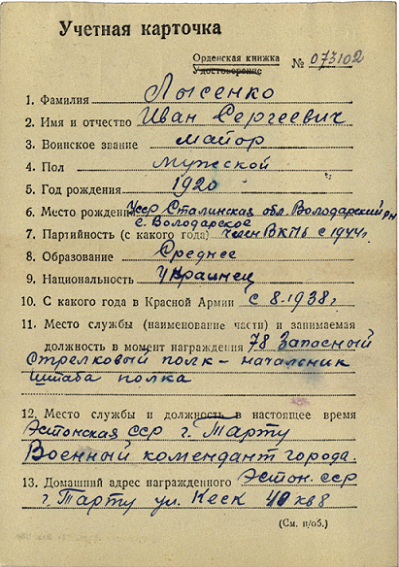 Учетная карточка
Орденская книжка
Удостоверение
№ 073102
1. Фамилия Лысенко
2. Имя и отчество Иван Сергеевич
3. Воинское звание майор
4. Пол мужской
5. Год рождения 1920
6. Место рождения Усср Сталинская обл. Володарский рн
с. Володарское
7. Партийность (с какого года) член ВКПб с 1944г
8. Образование Среднее
9. Национальность Украинец
10. С какого года в Красной Армии с 8.1938г
11. Место службы (наименование части) и занимаемая
должность в момент награждения 78 Запасный
Стрелковый полк – начальник
штаба полка
12. Место службы и должность в настоящее время
Эстонская сср г. Тарту
Военный комендант города.
13. Домашний адрес награжденного Эстон. сср
г. Тарту ул. Кеск 40 кв 8
(См. н/об.)